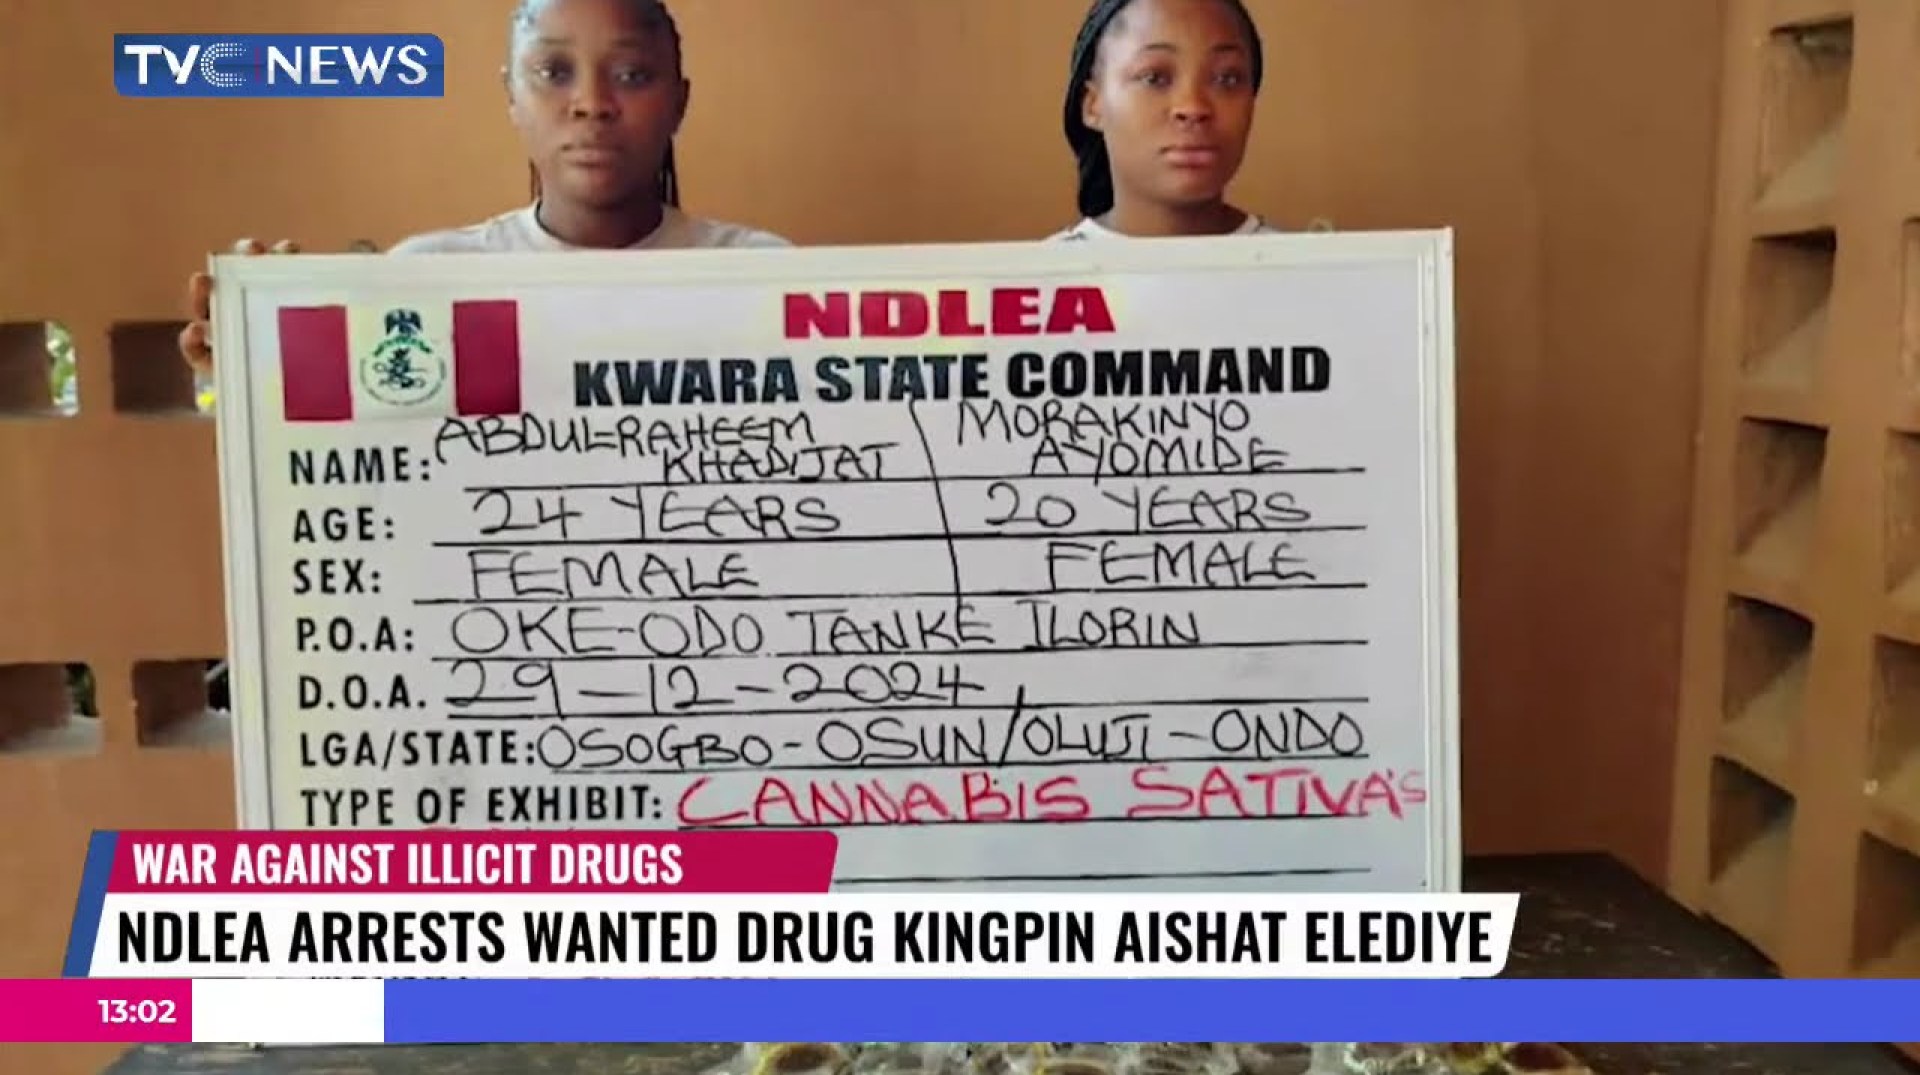 TVC NEWS
NDLEA
KWARA STATE COMMAND
NAME: ABDUL-RAHEEM KHADIJAT MORAKINYO AYOMIDE
AGE: 24 YEARS 20 YEARS
SEX: FEMALE FEMALE
P.O.A: OKE-ODO TANKE ILORIN
D.O.A. 29-12-2024
LGA/STATE: OSOGBO-OSUN/OLUJI-ONDO
TYPE OF EXHIBIT: CANNABIS SATIVA'S
WAR AGAINST ILLICIT DRUGS
NDLEA ARRESTS WANTED DRUG KINGPIN AISHAT ELEDIYE
13:02